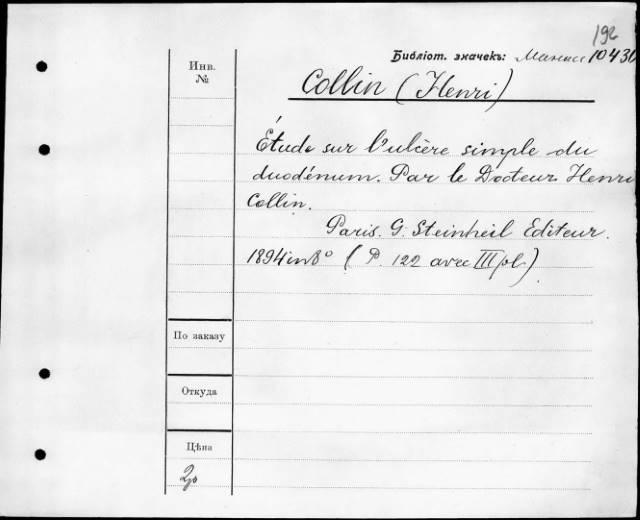 192
Библіот. значекъ: Манас 10430
Инв.
№
Collin (Henri)
Étude sur l'ulcère simple du
duodénum. Par le Docteur Henri
Collin.
Paris. G. Steinheil Editeur.
1894 in 8° ( P. 122 avec III pl.)
По заказу
Откуда
Цѣна